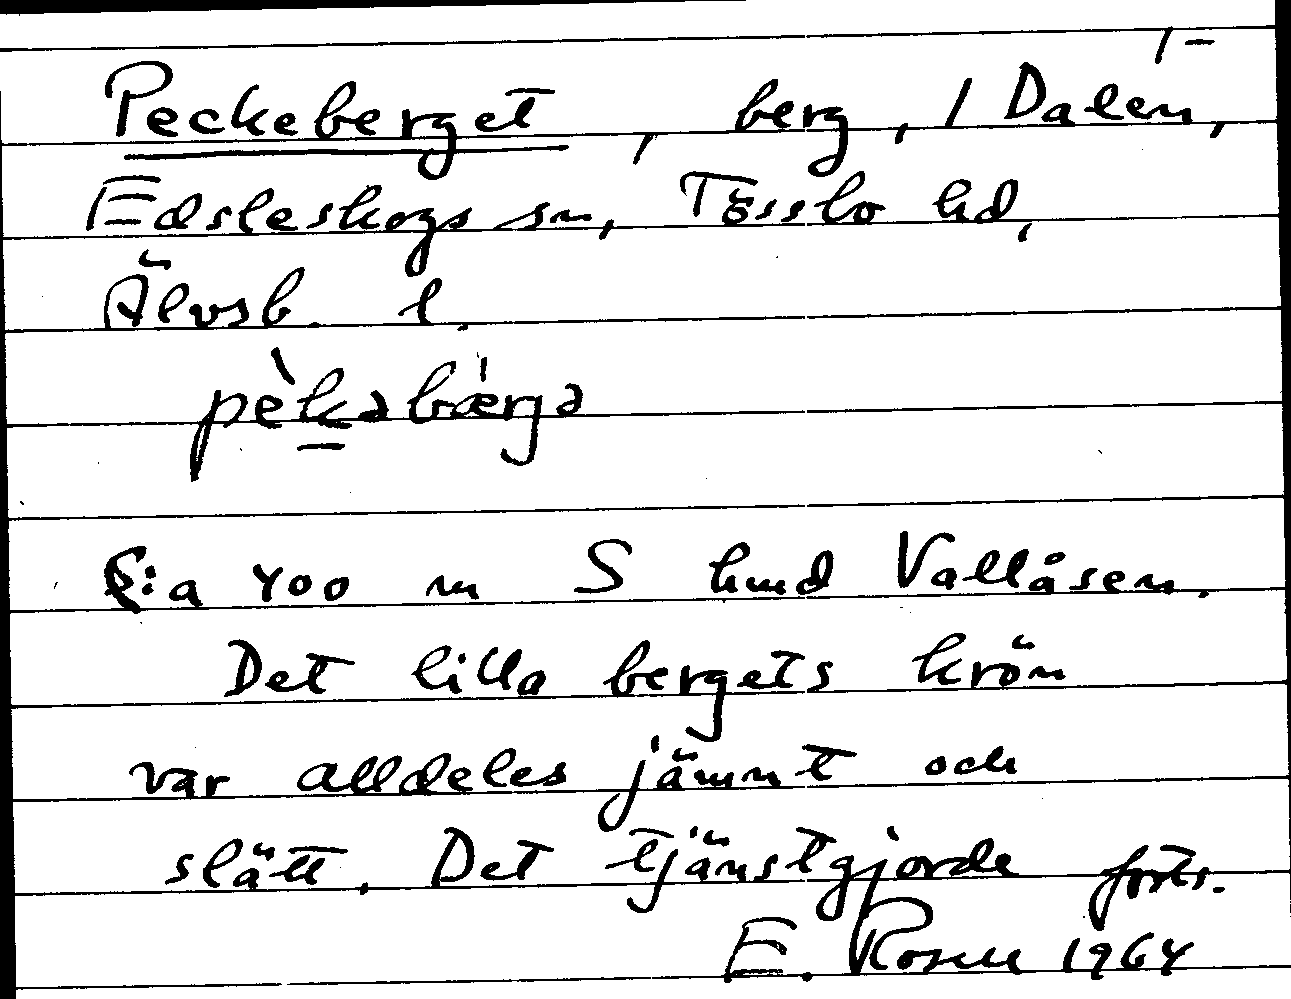 1-
Peckeberget, berg, 1 Dalen,
Edsleskogs sn, Tössbo hd,
Älvsb. l.
pèkəbæ̀rjə
C:a 400 m S hmd Vallåsen.
Det lilla bergets krön
var alldeles jämnt och
slätt. Det tjänstgjorde forts.
E. Rosell 1964